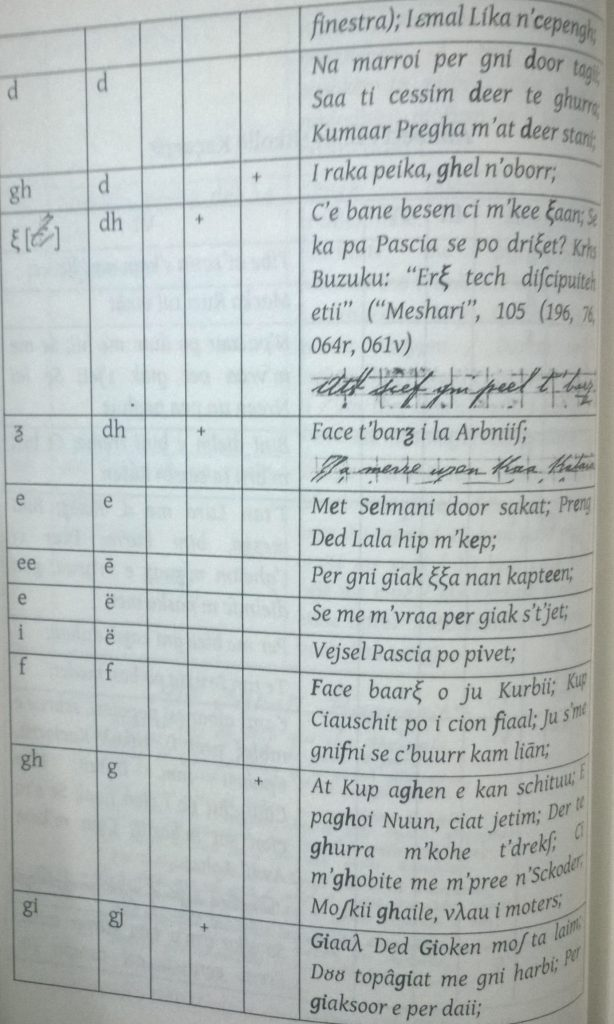 finestra); Iεmal Lika n'cepengh;
d d Na marroi per gni door
Saa ti cessim deer te ghurra;
Kumaar Pregha m'at deer stani;
gh d + I raka peika, ghel n'oborr;
ξ [ ] dh + C'e bane besen ci m'kee ξaan; Se
ka pa Pascia se po driξet? Krhs
Buzuku: "Erξ tech diſcipuiteh
etii" ("Meshari", 105 (196, 76,
064r, 061v)
sief gni peel t'
ꝫ dh + Face t'barꝫ i la Arbniiſ;
merre
e e Met Selmani door sakat; Preng
Ded Lala hip m'kep;
ee ē Per gni giak ξξa nan kapteen;
e ë Se me m'vraa per giak s't'jet;
i ë Vejsel Pascia po pivet;
f f Face baarξ o ju Kurbii; Kup
Ciauschit po i cion fiaal; Ju s'me
gnifni se c'buurr kam liān;
gh g + At Kup aghen e kan schituu; E
paghoi Nuun, ciat jetim; Der te
ghurra m'kohe t'drekſ; Ci
m'ghobite me m'pree n'Sckoder;
Moſkii ghaile, vλau i moters;
gi gj + Giaaλ Ded Gioken moſ ta laim;
Dȣȣ topâgiat me gni harbi; Per
giaksoor e per daii;